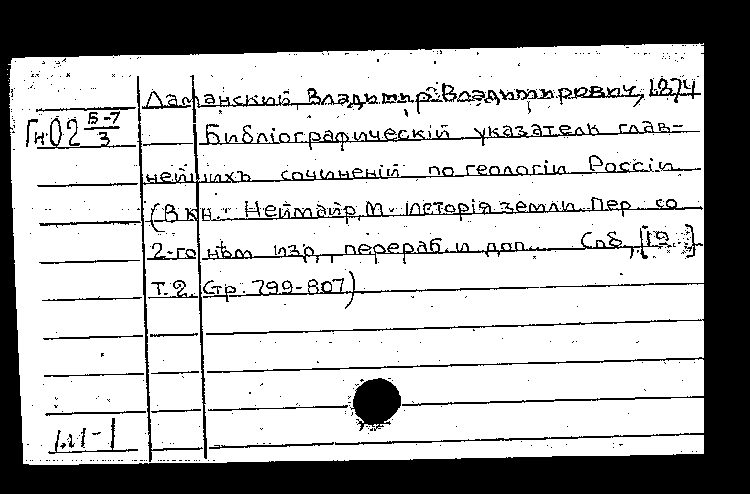 Ламанский, Владимир Владимирович, 1874
Гн02 Б-7/3
Библіографическій указатель глав-
нейшихъ сочиненій по геологіи Россіи.
(В кн.: Неймайр, М. Исторія земли. Пер. со
2-го нѣм. изд., перераб. и доп... Спб, [19 ]
т. 2. Стр. 799-807)